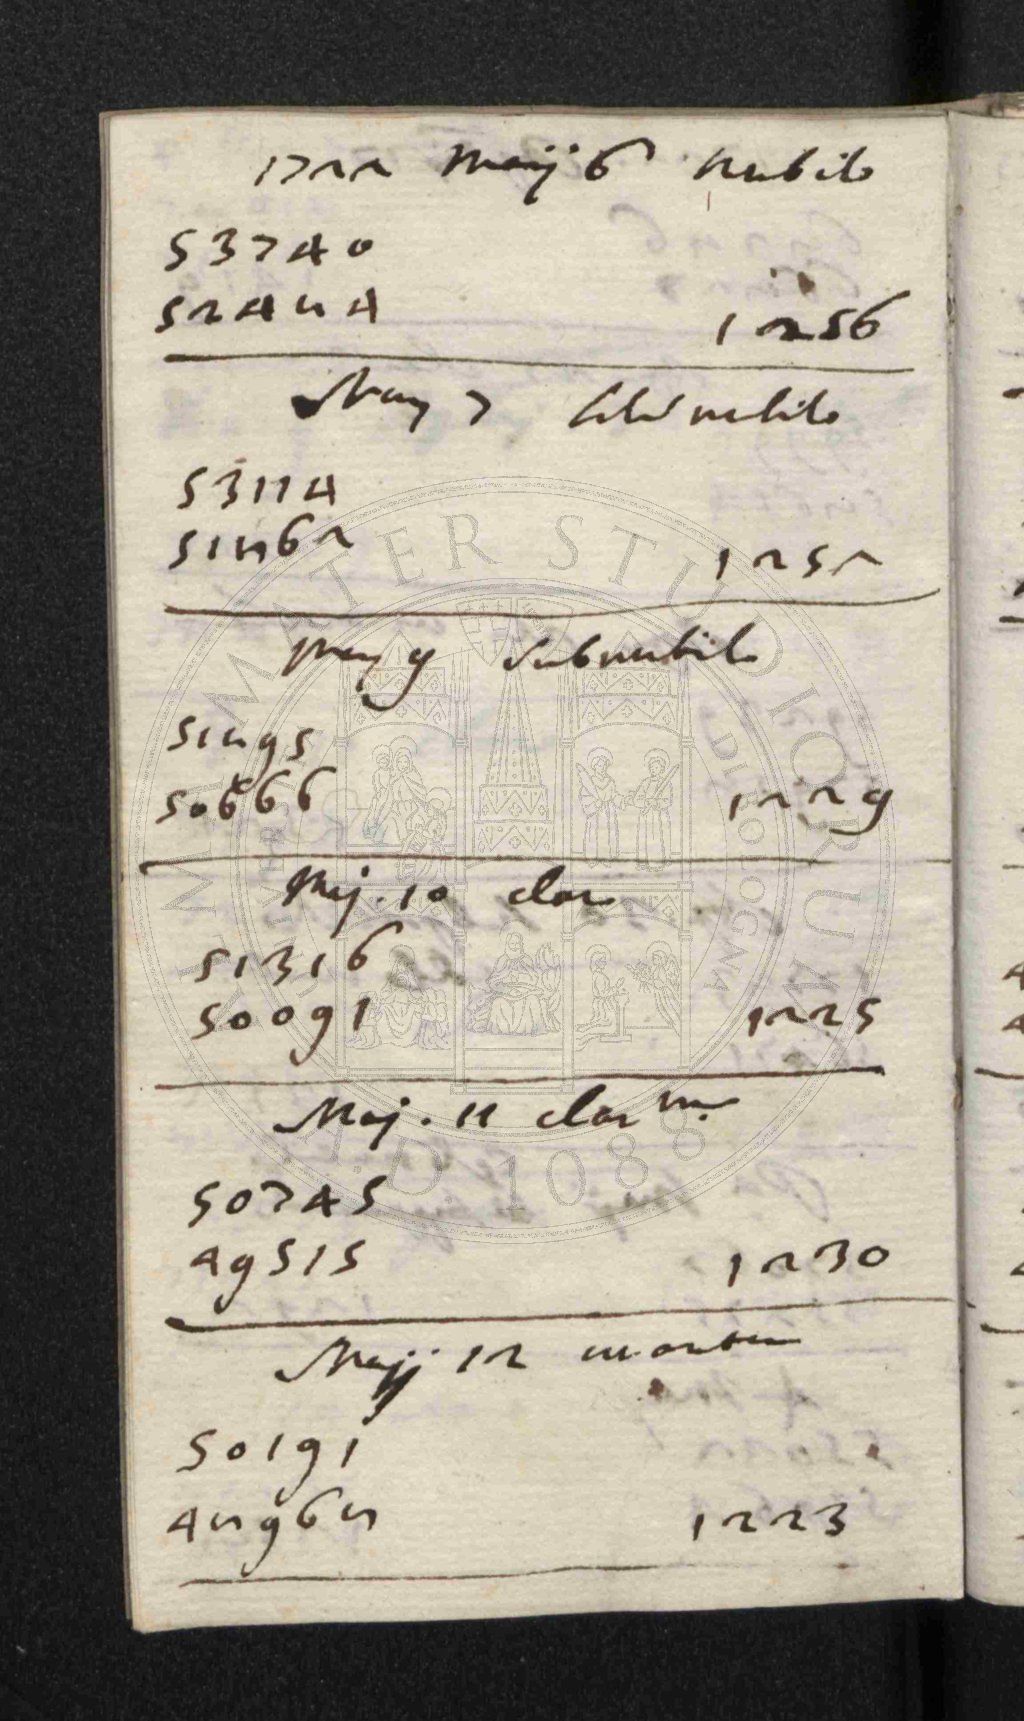 1722 Maij 6 nubilo
53740
52484 1256
May 7 nubilo
53114
51862 1252
May 9 subnubilo
51895
50666 1229
Maj. 10 clar
51316
50091 1225
Maj. 11 clar m.
50745
49515 1230
Majj 12
50191
48968 1223
ALMA MATER STUDIORUM
A.D. 1088